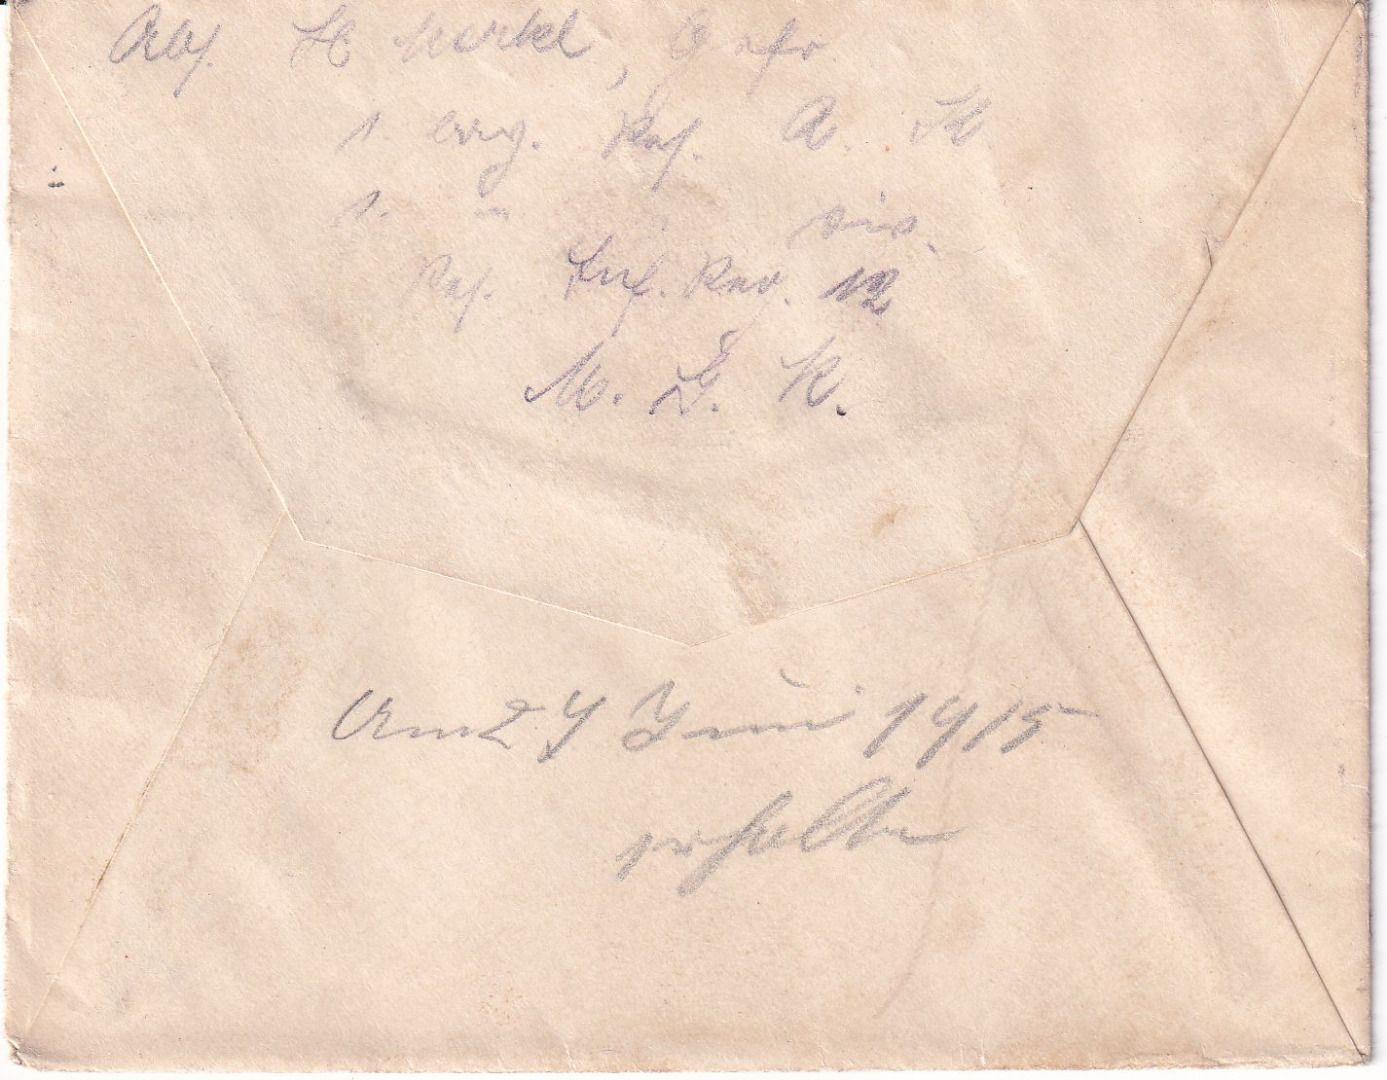 Abs. H Merkel, Gefr.
1. bay. Res. A. K
1. " " Div.
Res. Inf. Reg. 12
M. G. K.
Am 24 Juni 1915
erhalten